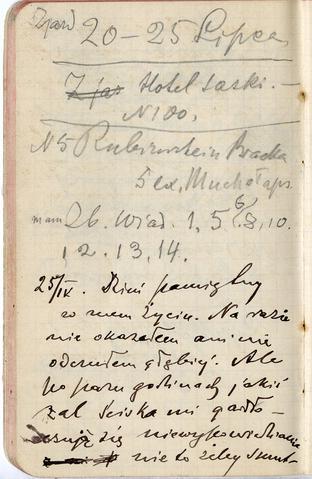 Zjazd 20–25 Lipca
Zjaz Hotel Saski.–
N 100.
N5 Rubinsztein Bracka
5 ex, Muchołaps
mam Zb. Wiad. 1, 5 6, 8, 10.
12. 13. 14.
25/IX. Dzień pamiętny
w mem życiu. Na razie
nie okazałem ani nie
odczułem głębiej. Ale
po paru godzinach jakiś
żal ściska mi gardło –
czuję się niewypowiedzianie
nie to żeby smut-